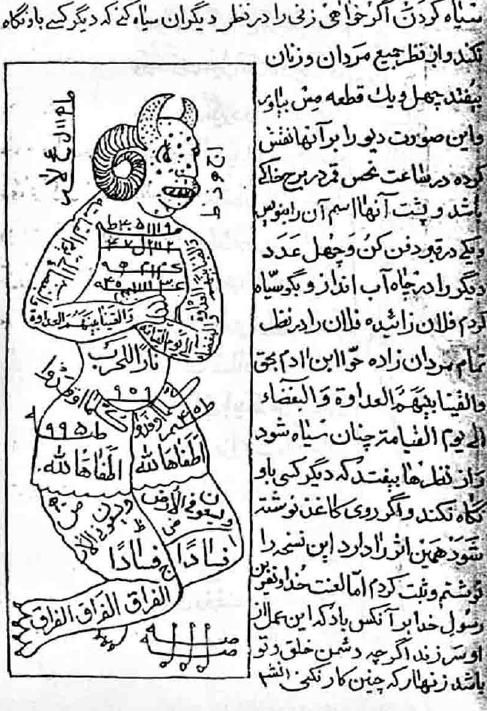 سیاه کردن اگر خواهی زنی را در نظر دیگران سیاه کنی که دیگر کسی باو نگاه
نکند و از نظر جمیع مردان و زنان
بیفتد چهل و یک قطعه مس بیاور
و این صورت دیو را بر آنها نقش
کرده در ساعت نحس قمر در برج خاکی
باشد و پشت آنها اسم آن را بنویس
و یکی در قبر دفن کن و چهل عدد
دیگر را در چاه آب انداز و بگو سیاه
کردم فلان زائیده فلان را در نظر
تمام مردان زاده حوا ابن ادم بحق
والقینا بینهم العداوة و البغضاء
الی یوم القیامة چنان سیاه شود
و از نظرها بیفتد که دیگر کسی باو
نگاه نکند و اگر روی کاغذ نوشته
شود همین اثر را دارد این نسخه را
نوشتم و ثبت کردم اما لعنت خدا و نفرین
رسول خدا بر آنکس باد که این عمل از
او سر زند اگر چه دشمن خلق و تو
باشد زنهار که چنین کار نکنی
والقینا بینهم العداوة
نار الحرب
۹۵۹
اطفاها الله
اطفاها الله
ویسعون فی الارض
ویسعون فی الارض
فسادًا
فسادًا
الفراق الفراق الفراق